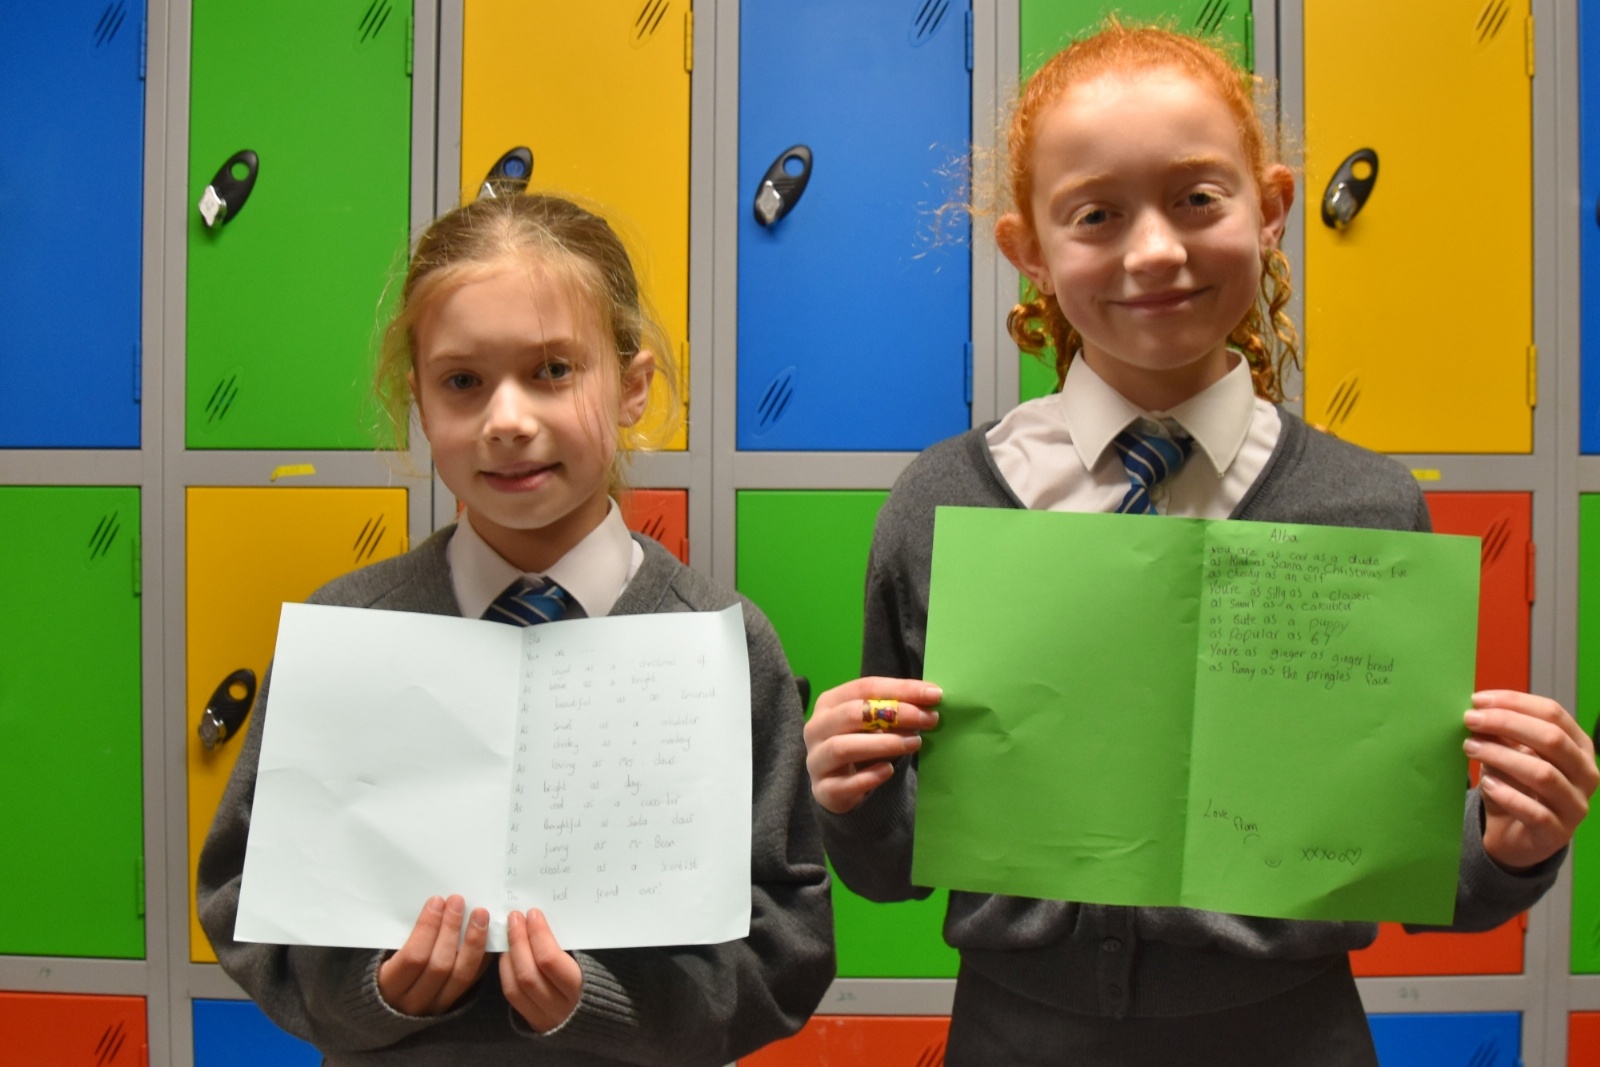 You are ....
As loud as a christmas
As as a bright
As beautiful as an Emerald
As smart as a calculator
As cheeky as a monkey
As loving as Mrs claus
As bright as day.
As cool as a
As thoughtful as Santa claus
As funny as Mr Bean
As creative as a scientist
The best freind ever!
Alba
You are as cool as a dude
as Kind as Santa on Christmas Eve
as cheeky as an elf
You're as silly as a clown
as smart as a calculator
as cute as a puppy
as popular as 67
You're as ginger as ginger bread
as funny as the pringles face
Love
from
xxxoo♡
19
22
24